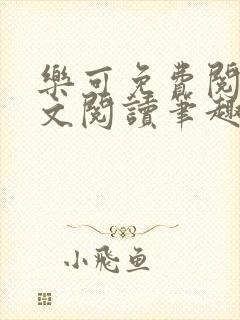 樂可免費閱
文閱讀筆趣
小飛魚